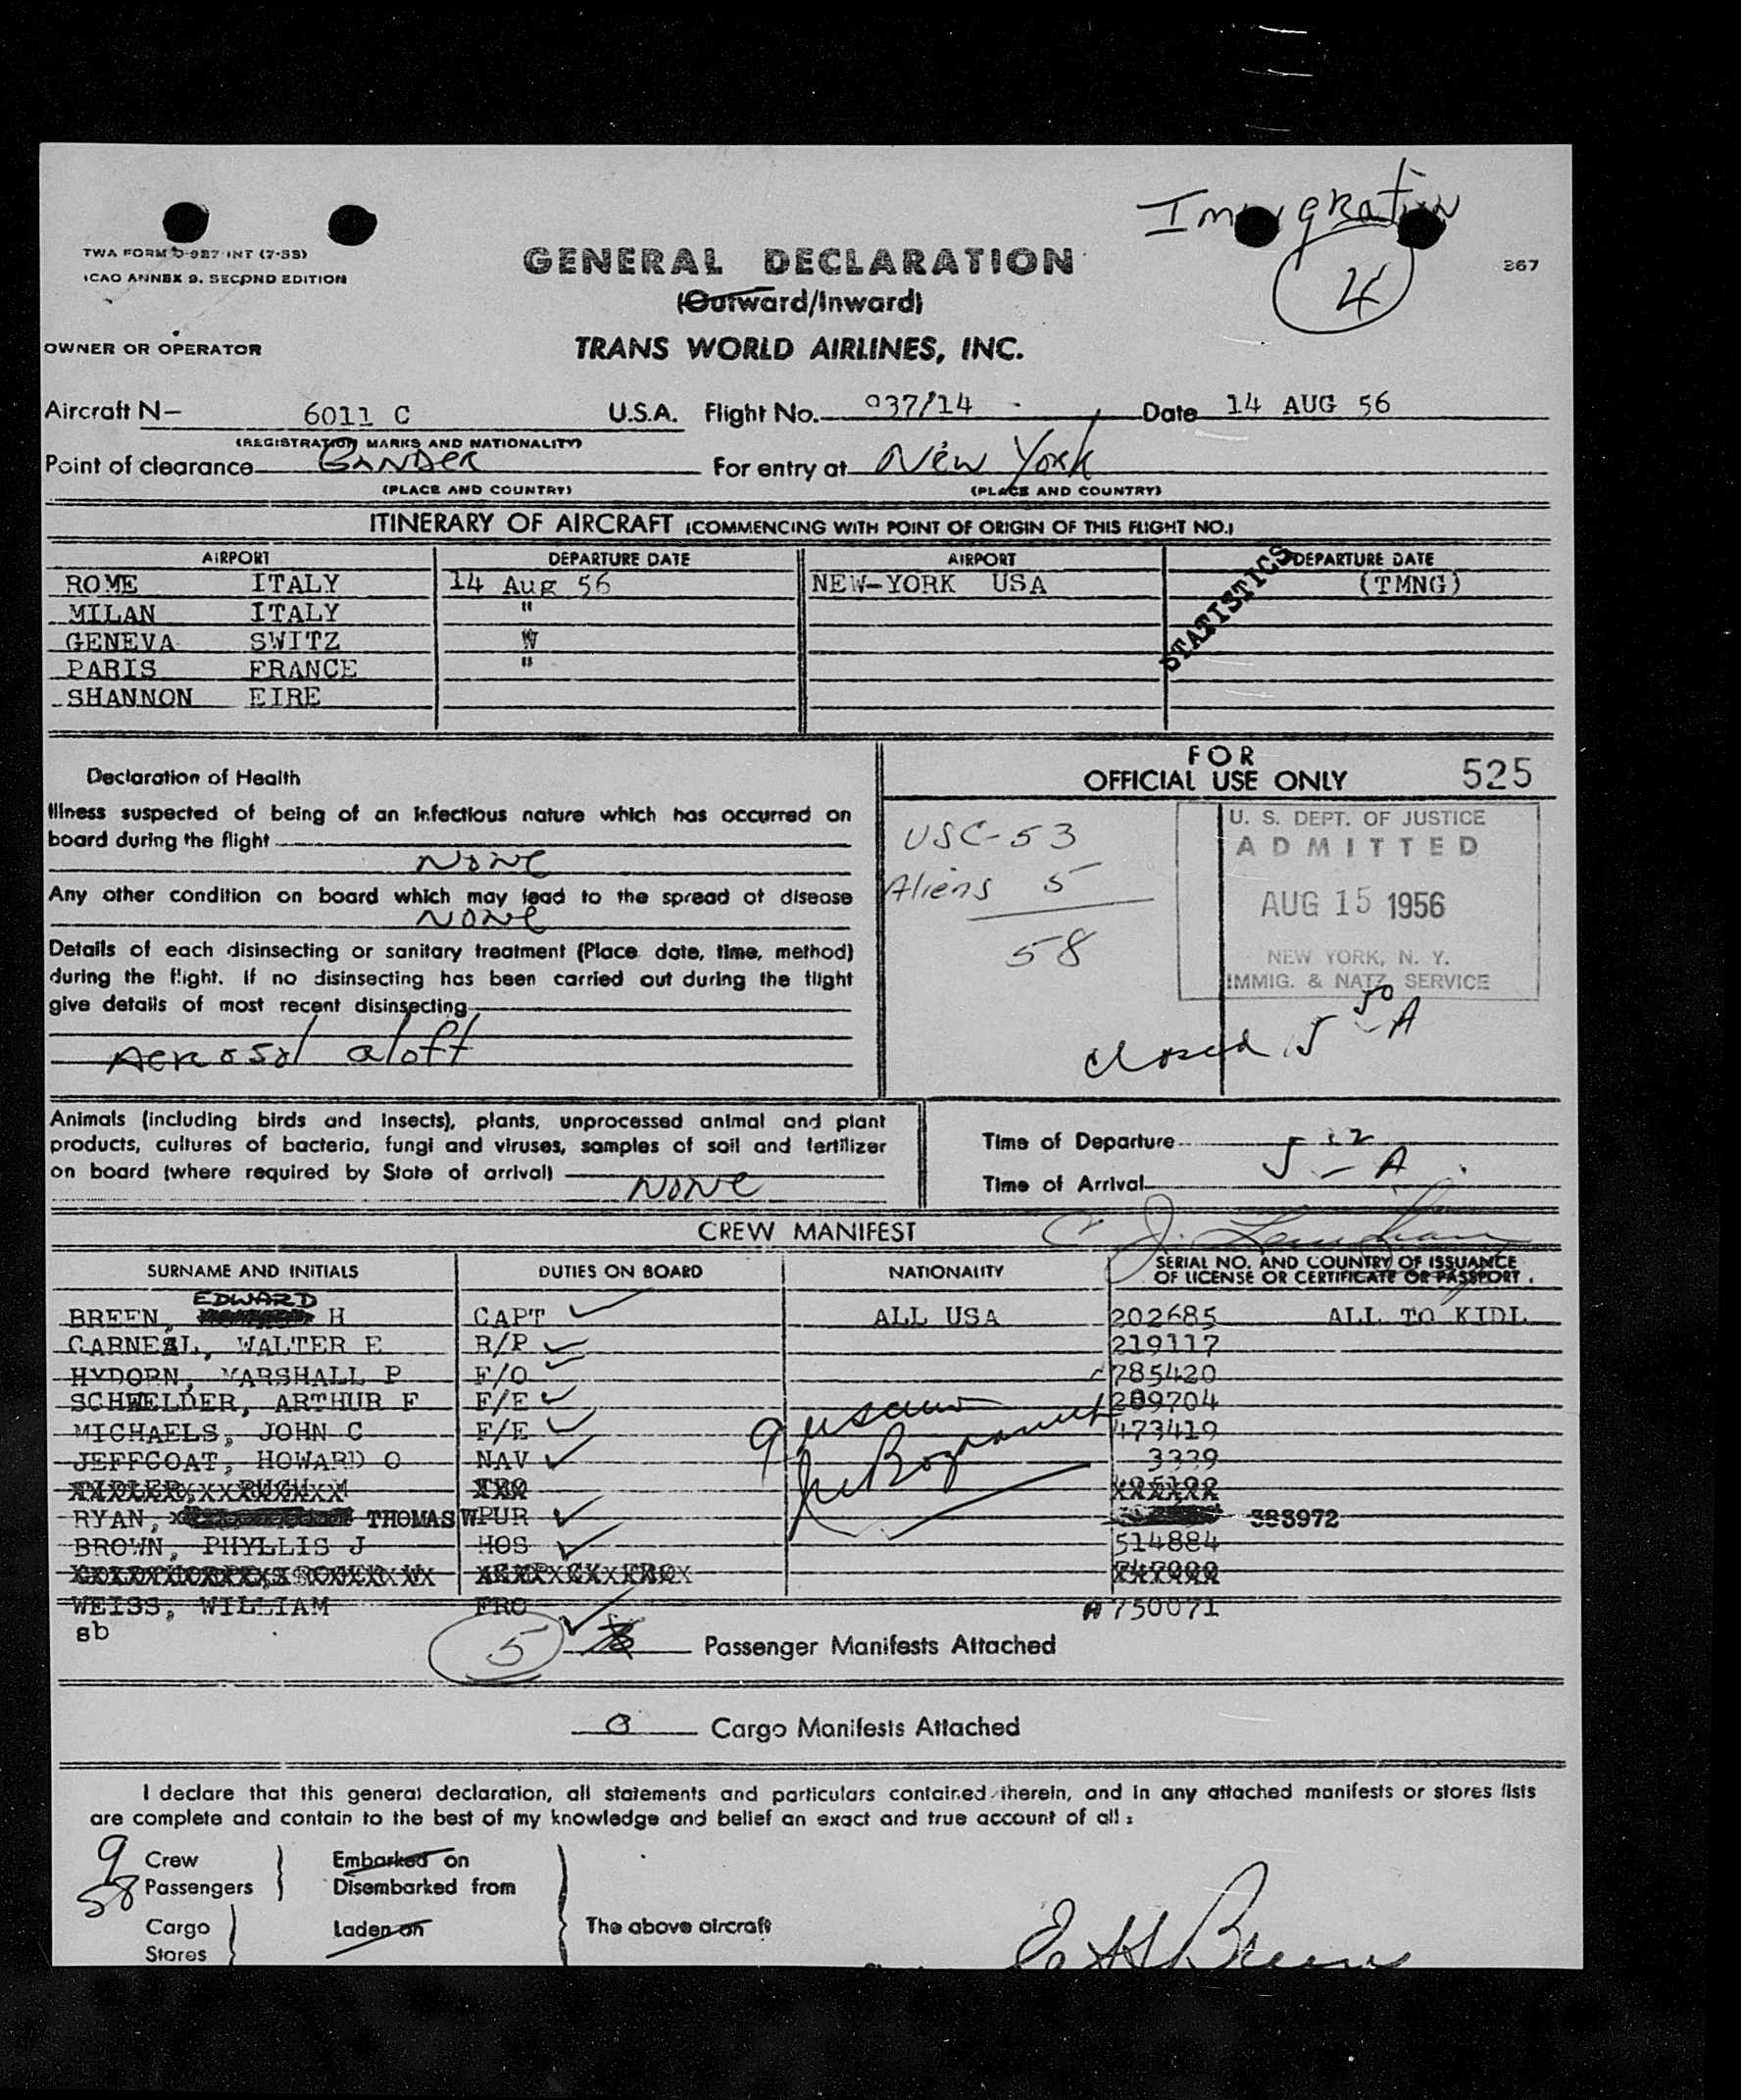 Immigration
4
TWA FORM O-987 INT (7-55)
ICAO ANNEX 9. SECOND EDITION
GENERAL DECLARATION
367
(Outward/Inward)
OWNER OR OPERATOR
TRANS WORLD AIRLINES, INC.
Aircraft N— 6011 C U.S.A. Flight No. 937/14 Date 14 AUG 56
(REGISTRATION MARKS AND NATIONALITY)
Point of clearance GANDER For entry at New York
(PLACE AND COUNTRY) (PLACE AND COUNTRY)
ITINERARY OF AIRCRAFT (COMMENCING WITH POINT OF ORIGIN OF THIS FLIGHT NO.)
AIRPORT DEPARTURE DATE AIRPORT DEPARTURE DATE
STATISTICS
ROME ITALY 14 Aug 56 NEW-YORK USA (TMNG)
MILAN ITALY "
GENEVA SWITZ "
PARIS FRANCE "
SHANNON EIRE
FOR
OFFICIAL USE ONLY 525
Declaration of Health
Illness suspected of being of an infectious nature which has occurred on
board during the flight
None
Any other condition on board which may lead to the spread of disease
None
Details of each disinsecting or sanitary treatment (Place, date, time, method)
during the flight. If no disinsecting has been carried out during the flight
give details of most recent disinsecting
Aerosol aloft
USC-53
Aliens 5
58
U. S. DEPT. OF JUSTICE
ADMITTED
AUG 15 1956
NEW YORK, N. Y.
IMMIG. & NATZ. SERVICE
Closed 5 50 A
Animals (including birds and insects), plants, unprocessed animal and plant
products, cultures of bacteria, fungi and viruses, samples of soil and fertilizer
on board (where required by State of arrival)
None
Time of Departure
Time of Arrival 5 A
CREW MANIFEST
SURNAME AND INITIALS DUTIES ON BOARD NATIONALITY SERIAL NO. AND COUNTRY OF ISSUANCE
OF LICENSE OR CERTIFICATE OR PASSPORT.
EDWARD
BREEN, H CAPT ALL USA 202685 ALL TO KIDL
CARNEAL, WALTER E R/P 219117
HYDORN, MARSHALL P F/O 785420
SCHWELDER, ARTHUR F F/E 289704
MICHAELS, JOHN C F/E 473419
JEFFCOAT, HOWARD O NAV 3339
RYAN, THOMAS W PUR 383972
BROWN, PHYLLIS J HOS 514884
WEISS, WILLIAM FRO 750071
sb
5 Passenger Manifests Attached
0 Cargo Manifests Attached
I declare that this general declaration, all statements and particulars contained therein, and in any attached manifests or stores lists
are complete and contain to the best of my knowledge and belief an exact and true account of all:
9 Crew Embarked on
58 Passengers Disembarked from
Cargo Laden on The above aircraft
Stores
E H Breen